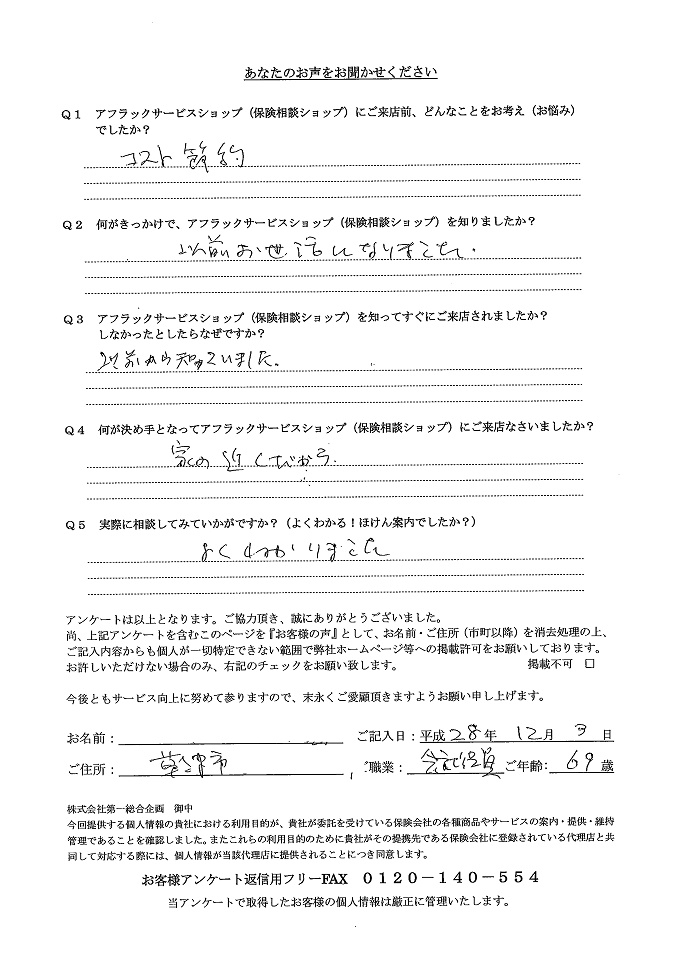 あなたのお声をお聞かせください
Q1 アフラックサービスショップ（保険相談ショップ）にご来店前、どんなことをお考え（お悩み）
でしたか？
コスト節約
Q2 何がきっかけで、アフラックサービスショップ（保険相談ショップ）を知りましたか？
以前お世話になりました.
Q3 アフラックサービスショップ（保険相談ショップ）を知ってすぐにご来店されましたか？
しなかったとしたらなぜですか？
以前から知っていました.
Q4 何が決め手となってアフラックサービスショップ（保険相談ショップ）にご来店なさいましたか？
家の近くだから.
Q5 実際に相談してみていかがですか？（よくわかる！ほけん案内でしたか？）
よくわかりました
アンケートは以上となります。ご協力頂き、誠にありがとうございました。
尚、上記アンケートを含むこのページを『お客様の声』として、お名前・ご住所（市町以降）を消去処理の上、
ご記入内容からも個人が一切特定できない範囲で弊社ホームページ等への掲載許可をお願いしております。
お許しいただけない場合のみ、右記のチェックをお願い致します。 掲載不可 □
今後ともサービス向上に努めて参りますので、末永くご愛顧頂きますようお願い申し上げます。
お名前： ご記入日：平成28年 12月 3日
ご住所： 草津市 ご職業： 会社役員 ご年齢： 69歳
株式会社第一総合企画 御中
今回提供する個人情報の貴社における利用目的が、貴社が委託を受けている保険会社の各種商品やサービスの案内・提供・維持
管理であることを確認しました。またこれらの利用目的のために貴社がその提携先である保険会社に登録されている代理店と共
同して対応する際には、個人情報が当該代理店に提供されることにつき同意します。
お客様アンケート返信用フリーFAX 0120－140－554
当アンケートで取得したお客様の個人情報は厳正に管理いたします。